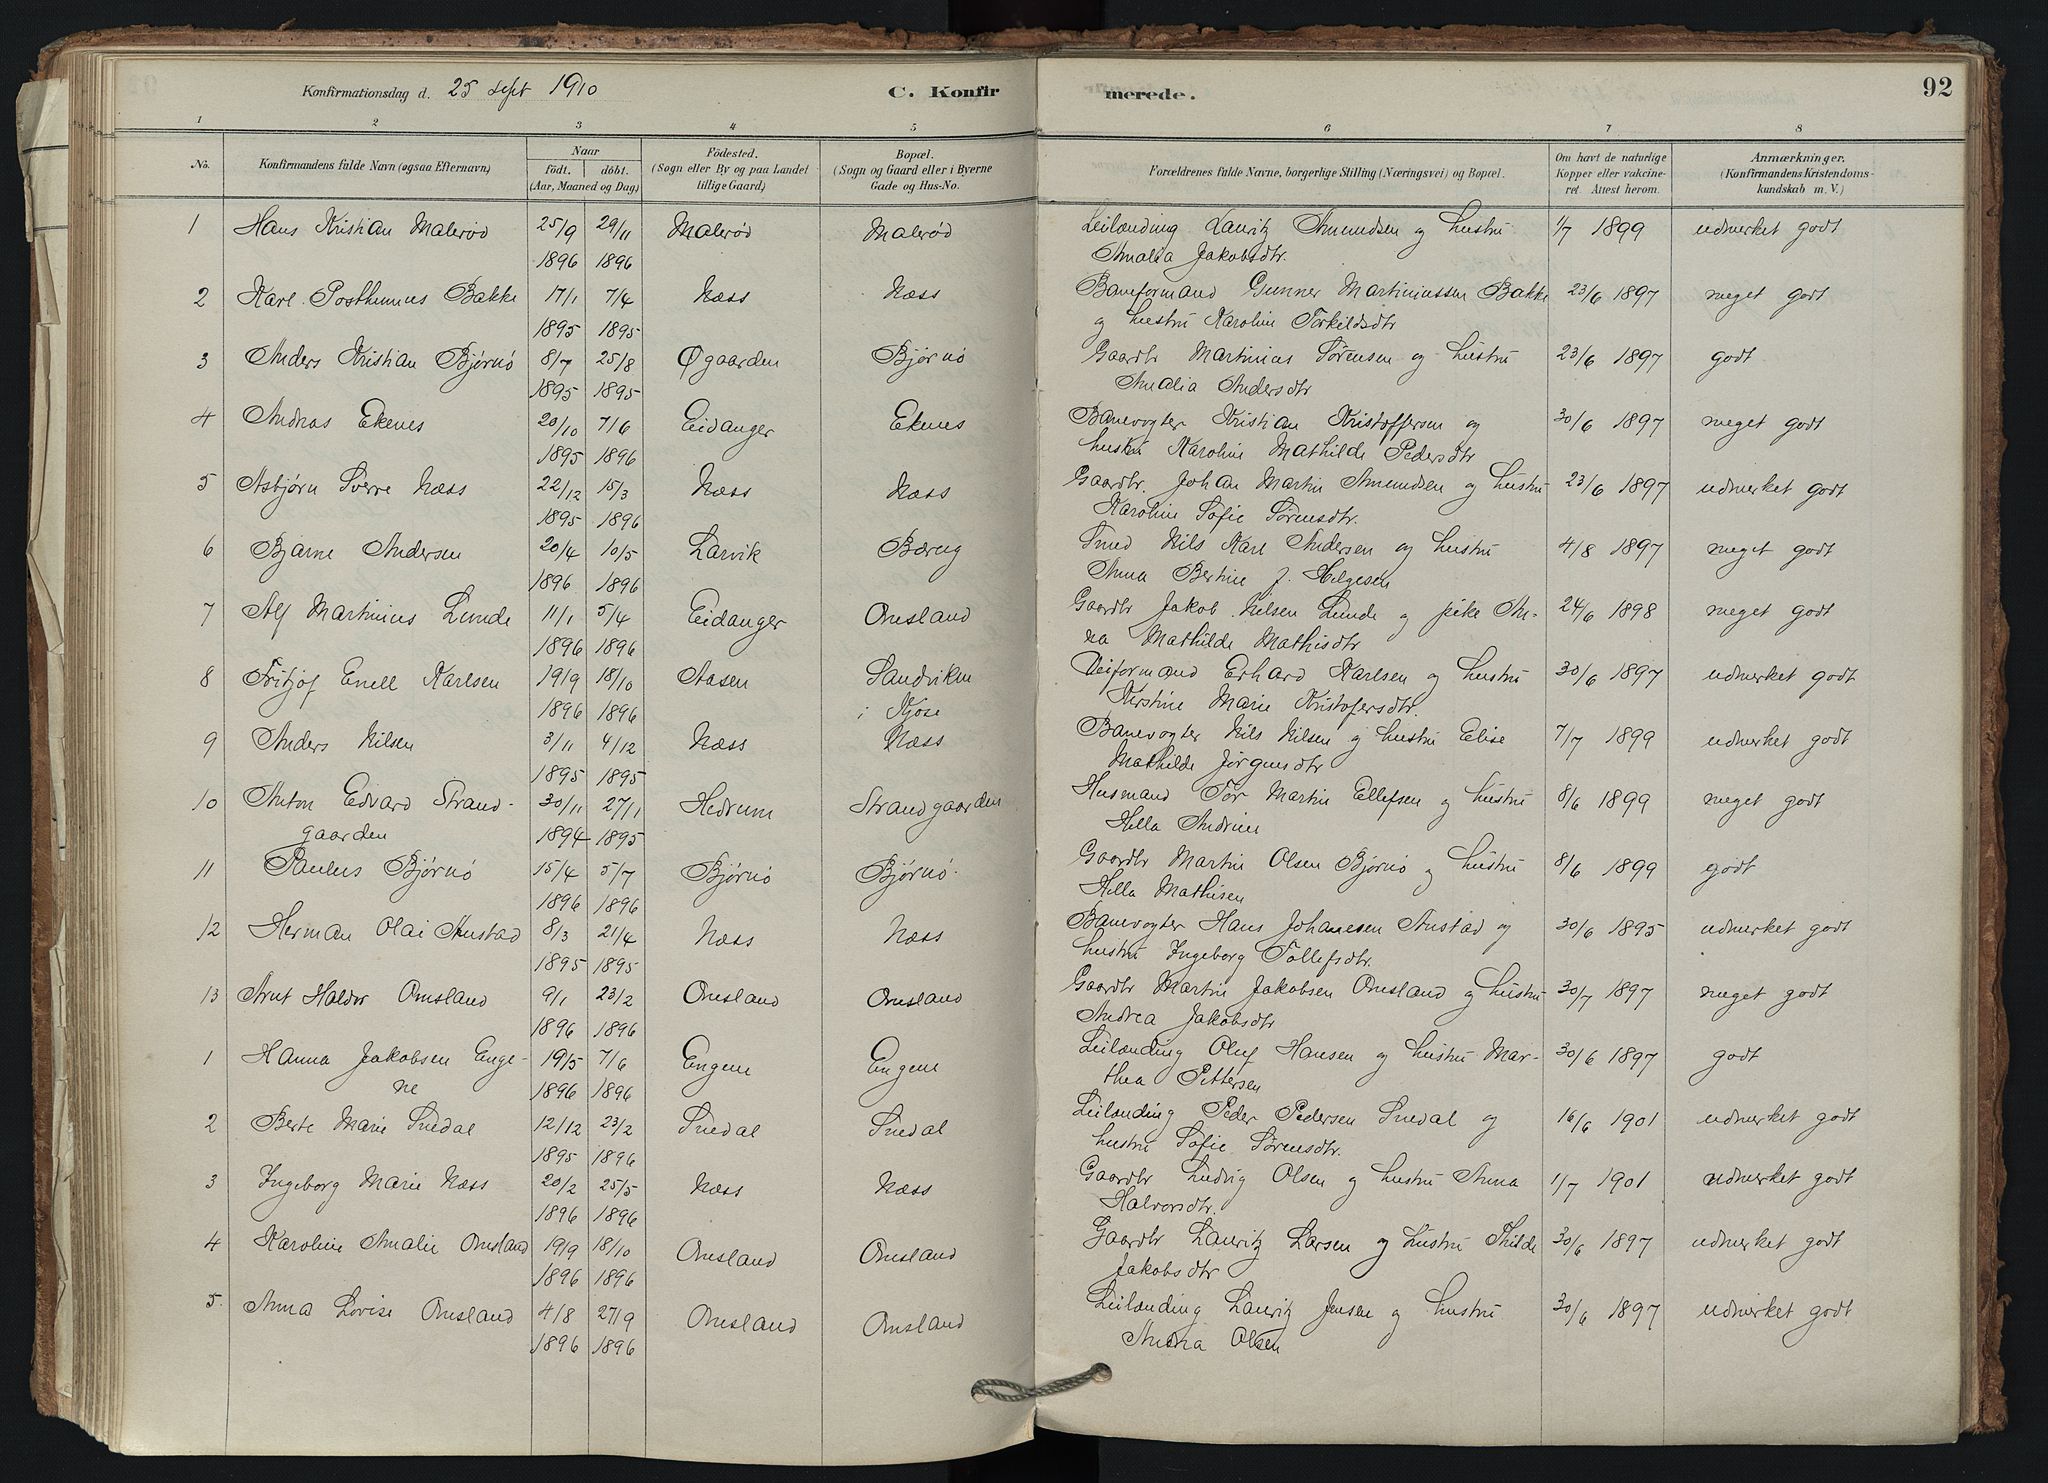 Konfirmationsdag d. 25 sept 1910 C. Konfirmerede. 92
1 2 3 4 5 6 7 8
No. Konfirmandens fulde Navn (ogsaa Efternavn) Naar født. døbt. (Aar, Maaned og Dag) Fødested. (Sogn eller By og paa Landet tillige Gaard) Bopæl. (Sogn og Gaard eller i Byerne Gade og Hus-No. Forældrenes fulde Navne, borgerlige Stilling (Næringsvei) og Bopæl. Om havt de naturlige Kopper eller vakcineret. Attest herom. Anmærkninger. (Konfirmandens Kristendomskundskab m. V.)
1 Hans Kristian Malerød 25/9 29/11 Malerød Malerød Leilænding Lauritz Amundsen og hustru 1/7 1899 udmerket godt
1896 1896 Amalia Jakobsdtr.
2 Karl Posthumus Bakke 17/1 7/4 Næss Næss Baneformand Gunner Martiniussen Bakke 23/6 1897 meget godt
1895 1895 og hustru Karoline Torkildsdtr
3 Anders Kristian Bjørnø 8/7 25/8 Øgaarden Bjørnø Gaardbr Martinius Sørensen og hustru 23/6 1897 godt
1895 1895 Amalia Andersdtr
4 Andreas Ekenes 20/10 7/6 Eidanger Ekenes Banevogter Kristian Kristoffersen og 30/6 1897 meget godt
1895 1896 hustru Karoline Mathilde Pedersdtr
5 Asbjørn Sverre Næss 22/12 15/3 Næss Næss Gaardbr. Johan Martin Amundsen og hustru 23/6 1897 udmerket godt
1895 1896 Karoline Sofie Sørensdtr.
6 Bjarne Andersen 20/4 10/5 Larvik Bærug Smed Nils Karl Andersen og hustru 4/8 1897 meget godt
1896 1896 Anna Bertine f. Helgesen
7 Alf Martinius Lunde 11/1 5/4 Eidanger Omsland Gaardbr Jakob Nilsen Lunde og pike An- 24/6 1898 meget godt
1896 1896 na Mathilde Mathisdtr
8 Fritjof Enell Karlsen 19/9 18/10 Aasen Sandviken Veiformand Erhard Karlsen og hustru 30/6 1897 udmerket godt
1896 1896 i Kjose Kirstine Marie Kristofersdtr.
9 Anders Nilsen 3/11 4/12 Næss Næss Banevogter Nils Nilsen og hustru Elise 7/7 1899 udmerket godt
1895 1895 Mathilde Jørgensdtr
10 Anton Edvard Strand- 30/11 27/1 Hedrum Strandgaarden Husmand Tor Martin Ellefsen og hustru 8/6 1899 meget godt
gaarden 1894 1895 Hella Andrine
11 Paulus Bjørnø 15/4 5/7 Bjørnø Bjørnø. Gaardbr Martin Olsen Bjørnø og hustru 8/6 1899 godt
1896 1896 Hella Mathisen
12 Herman Olai Anstad 8/3 21/4 Næss Næss Banevogter Hans Johanesen Anstad og 30/6 1895 udmerket godt
1895 1895 hustru Ingeborg Tollefsdtr.
13 Arnt Halder Omsland 9/1 23/2 Omsland Omsland Gaardbr Martin Jakobsen Omsland og hustru 30/7 1897 meget godt
1896 1896 Andrea Jakobsdtr
1 Hanna Jakobsen Enge- 19/5 7/6 Engene Engene Leilænding Oluf Hansen og hustru Mar- 30/6 1897 godt
ne 1896 1896 thea Pettersen
2 Berte Marie Snedal 12/12 23/2 Snedal Snedal Leilænding Peder Pedersen Snedal og 16/6 1901 udmerket godt
1895 1896 hustru Sofie Sørensdtr.
3 Ingeborg Marie Næss 20/2 25/5 Næss Næss Gaardbr Ludvig Olsen og hustru Anna 1/7 1901 udmerket godt
1896 1896 Halvorsdtr.
4 Karoline Amalie Omsland 19/9 18/10 Omsland Omsland Gaardbr Lauritz Larsen og hustru Thilde 30/6 1897 udmerket godt
1896 1896 Jakobsdtr
5. Anna Lovise Omsland 4/8 27/9 Omsland Omsland Leilænding Lauritz Jensen og hustru 30/6 1897 udmerket godt
1896 1896 Andrea Olsen